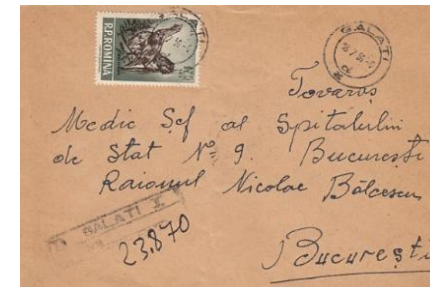 R.P.ROMINA
GALATI
Tovarăș
Medic Șef al Spitalului
de Stat Nº 9. București
Raionul Nicolae Bălcescu
GALATI I
23.870
București